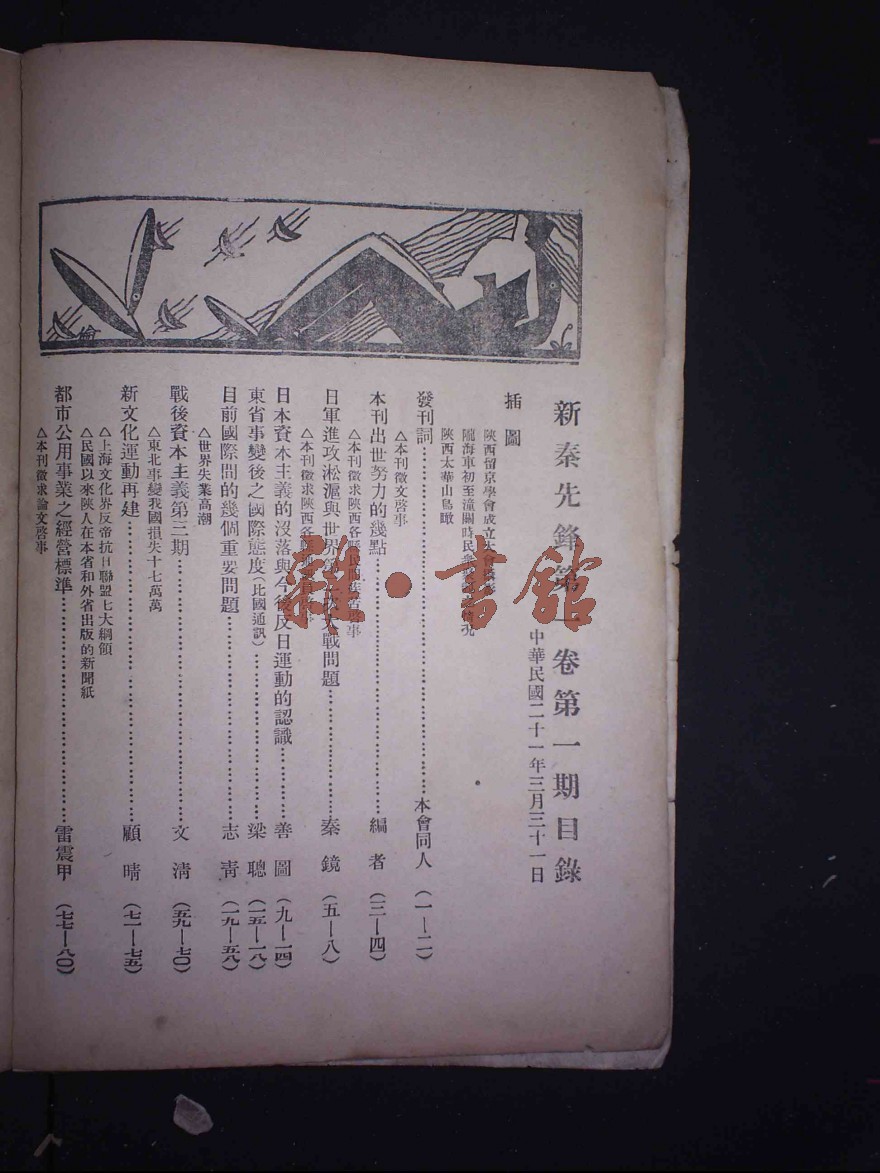 新秦先鋒第一卷第一期目錄
中華民國二十一年三月三十一日
插圖
陝西留京學會成立大會攝影
隴海車初至潼關時民衆
陝西太華山鳥瞰
發刊詞……………本會同人（一—二）
△本刊徵文啓事
本刊出世努力的幾點……………編者（三—四）
△本刊徵求陝西各縣民間
日軍進攻淞滬與世界第二次大戰問題……………秦鏡（五—八）
△本刊徵求陝西各縣
日本資本主義的沒落與今後反日運動的認識……………善圖（九—一四）
東省事變後之國際態度（比國通訊）……………梁聰（一五—一八）
目前國際間的幾個重要問題……………志靑（一九—五八）
△世界失業高潮
戰後資本主義第三期……………文淸（五九—七〇）
△東北事變我國損失十七萬萬
新文化運動再建……………顧晴（七一—七五）
△上海文化界反帝抗日聯盟七大綱領
△民國以來陝人在本省和外省出版的新聞紙
都市公用事業之經營標準……………雷震甲（七七—八〇）
△本刊徵求論文啓事
雜·書館